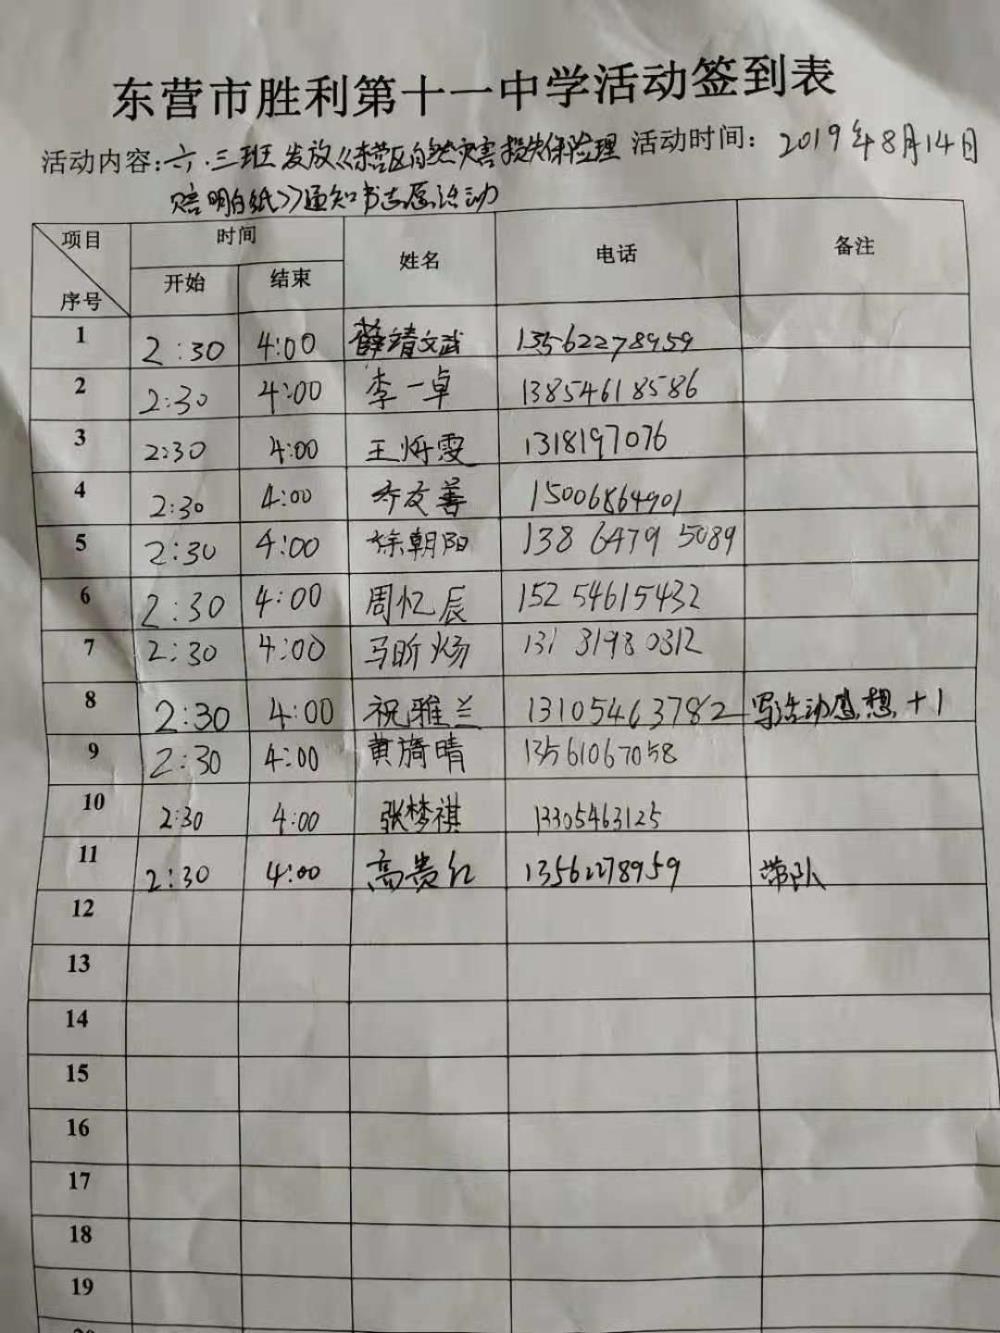 东营市胜利第十一中学活动签到表
活动内容:六.三班 发放《东营区自然灾害损失保险理 活动时间: 2019年8月14日
赔明白纸》通知书志愿活动
项目 时间 姓名 电话 备注
序号 开始 结束
1 2:30 4:00 薛靖文武 13562278959
2 2:30 4:00 李一卓 13854618586
3 2:30 4:00 王烁雯 1318197076
4 2:30 4:00 乔友善 15006864901
5 2:30 4:00 徐朝阳 138 6479 5089
6 2:30 4:00 周忆辰 152 54615432
7 2:30 4:00 马昕炀 131 8198 0312
8 2:30 4:00 祝雅兰 13105463782 写活动感想 +1
9 2:30 4:00 黄旖晴 13561067058
10 2:30 4:00 张梦祺 13305463125
11 2:30 4:00 高贵红 13562278959 带队
12
13
14
15
16
17
18
19